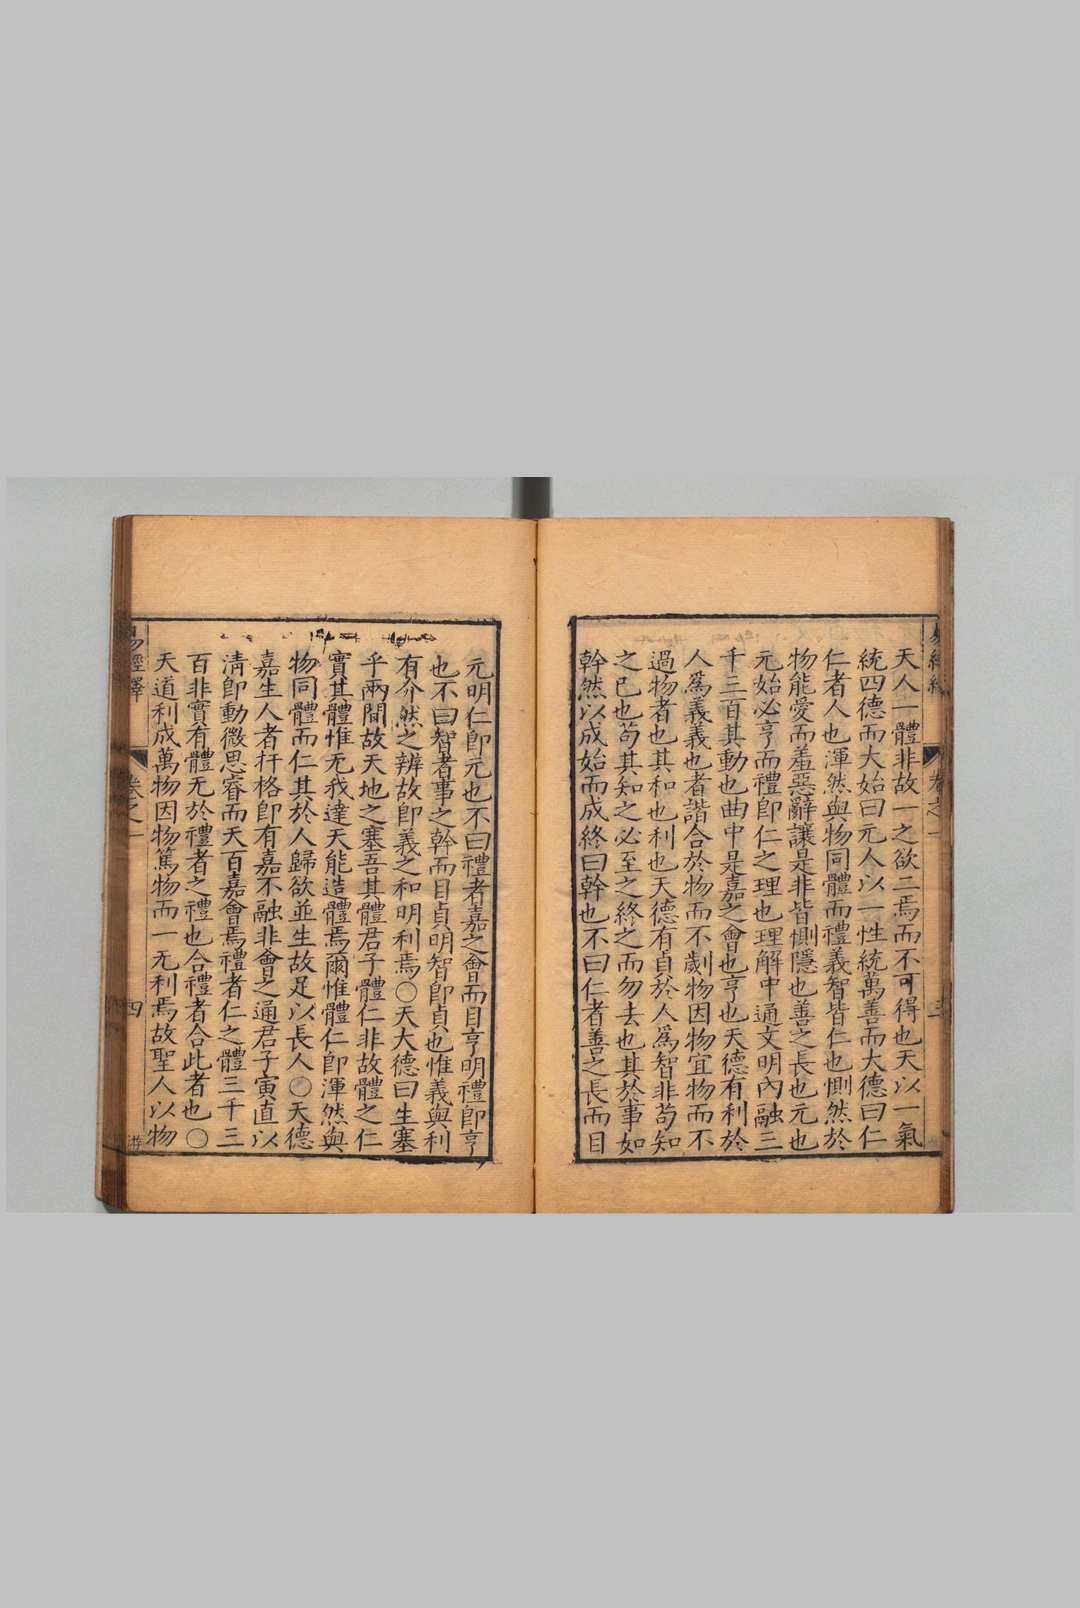 天人一體非故一之欲二焉而不可得也天以一氣
統四德而大始曰元人以一性統萬善而大德曰仁
仁者人也渾然與物同體而禮義智皆仁也惻然於
物能愛而羞惡辭讓是非皆惻隱也善之長也元也
元始必亨而禮即仁之理也理解中通文明內融三
千三百其動也曲中是嘉之會也亨也天德有利於
人爲義義也者諧合於物而不劌物因物宜物而不
過物者也其和也利也天德有貞於人爲智非苟知
之已也苟其知之必至之終之而勿去也其於事如
幹然以成始而成終曰幹也不曰仁者善之長而目
元明仁即元也不曰禮者嘉之會而目亨明禮即亨
也不曰智者事之幹而目貞明智即貞也惟義與利
有介然之辨故即義之和明利焉〇天大德曰生塞
乎兩間故天地之塞吾其體君子體仁非故體之仁
實其體惟无我達天能造體焉爾惟體仁即渾然與
物同體而仁其於人歸欲並生故足以長人〇天德
嘉生人者扞格即有嘉不融非會之通君子寅直以
清即動微思睿而天百嘉會焉禮者仁之體三千三
百非實有體无於禮者之禮也合禮者合此者也〇
天道利成萬物因物篤物而一无利焉故聖人以物
易經繹
卷之一
四